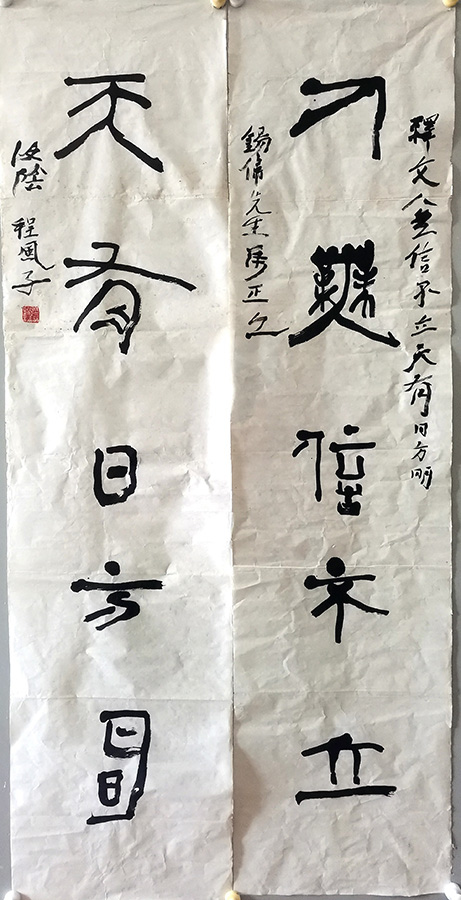 釋文人無信不立天有日方明
人無信不立
錫 先生属正之
天有日方明
汝陰 程風子